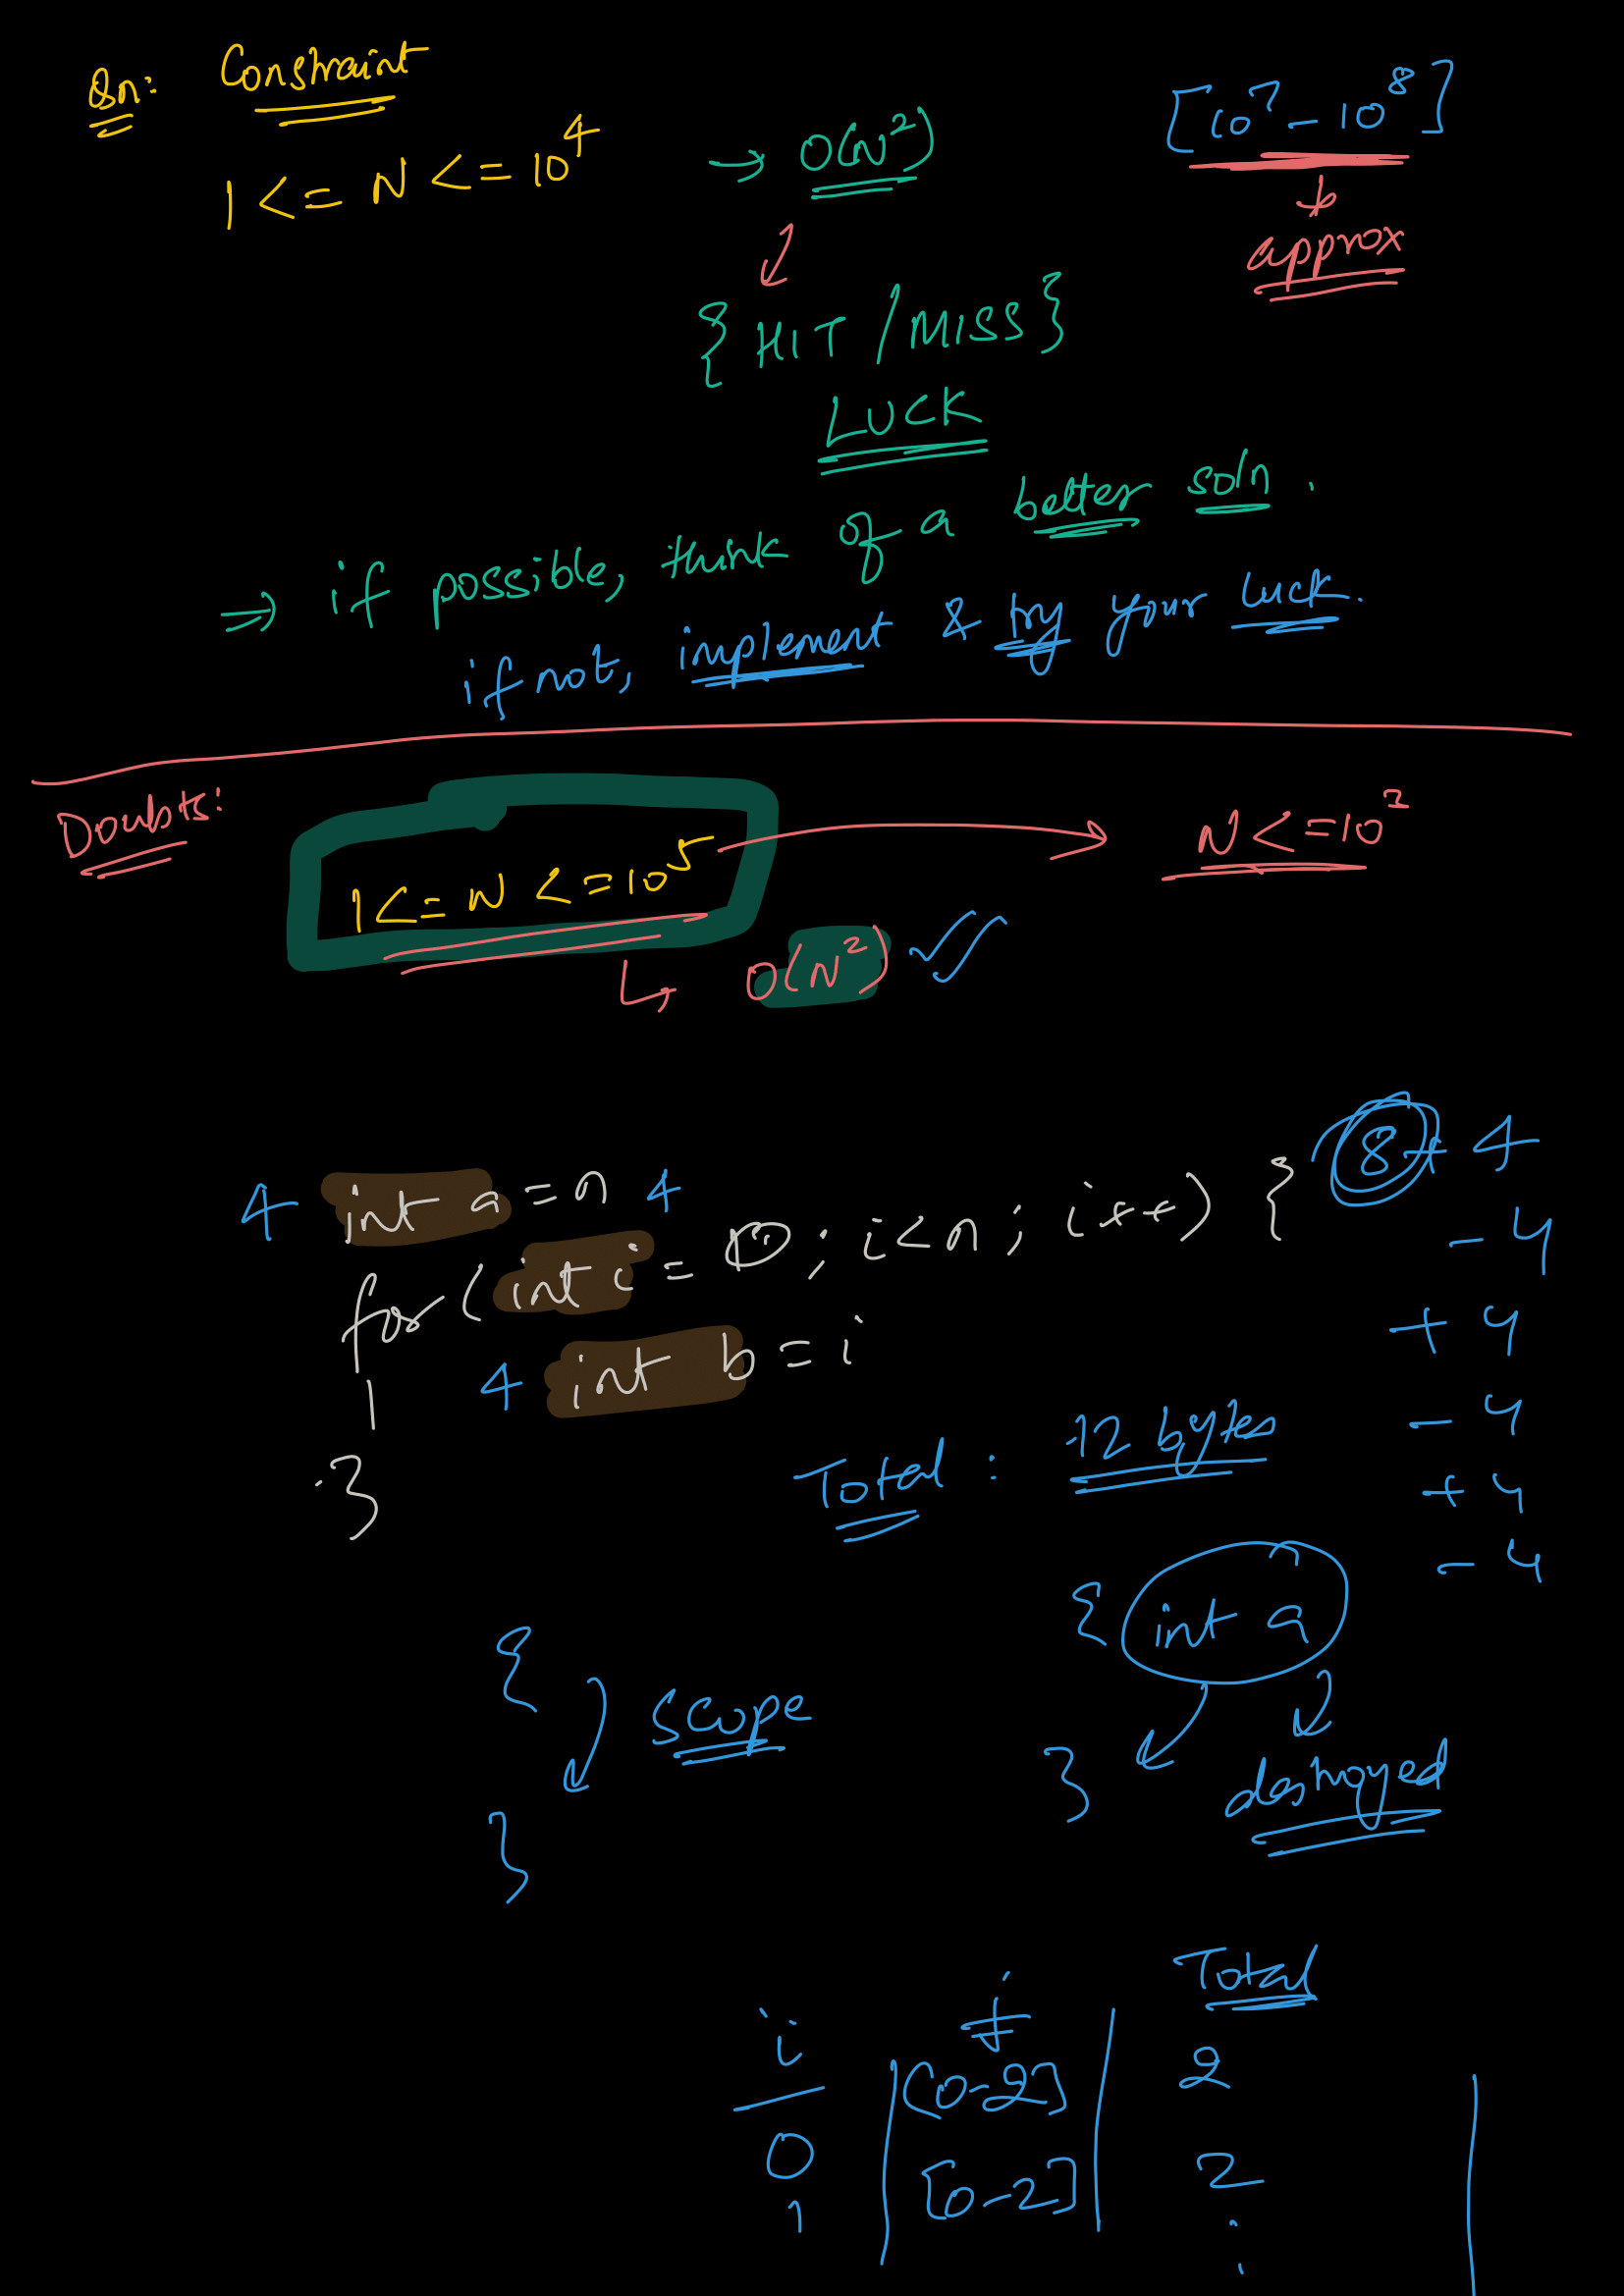 Qn: Constraint
1 <= N <= 10^4 → O(N^2) [10^7 - 10^8]
approx
{ HIT / MISS }
LUCK
⇒ if possible, think of a better soln.
if not, implement & try your luck.
Doubts:
1 <= N <= 10^5 → N <= 10^3
↳ O(N^2) ✓✓
4 int a = n 4
for (int i = 0; i < n; i++) { 8 + 4
4 int b = i
}
- 4
+ 4
- 4
+ 4
- 4
Total: 12 bytes
{
scope
}
{ int a
} destroyed
i j Total
0 [0-2] 2
1 [0-2] 2